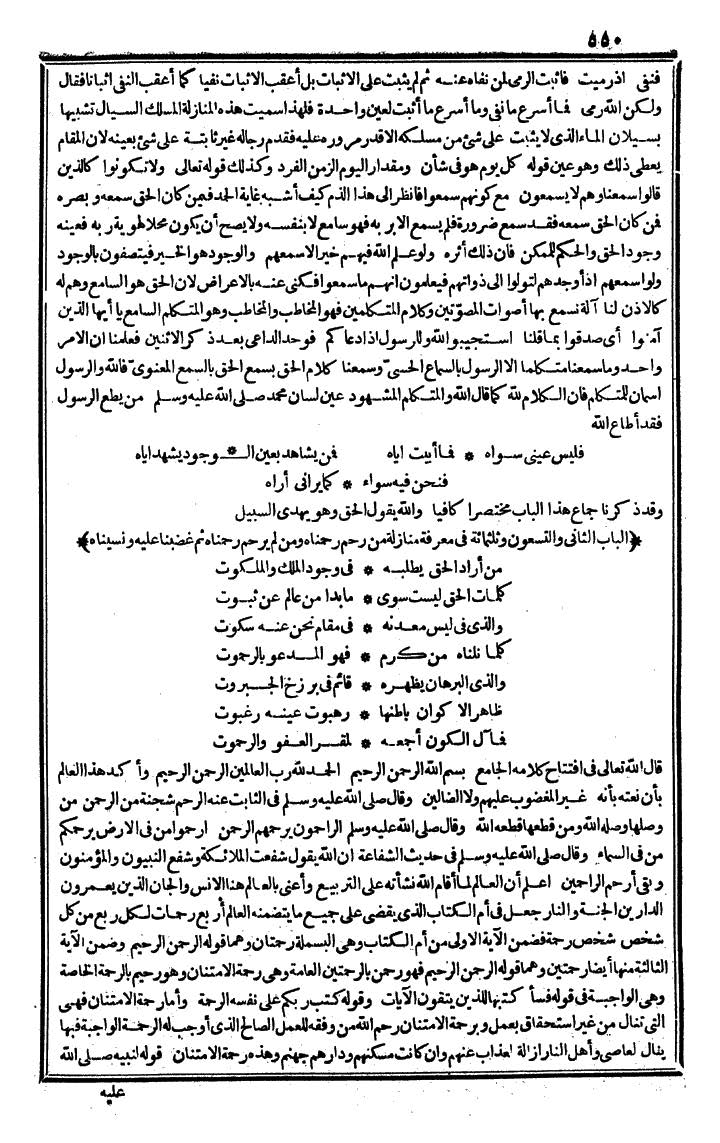 ٥٥٠
فنفى اذ رميت فاثبت الرمى لمن نفاه عنه ثم لم يثبت على الاثبات بل أعقب الاثبات نفيا كما أعقب النفى اثباتا فقال
ولكن الله رمى فما أسرع ما نفى وما أسرع ما أثبت لعين واحدة فلهذا سميت هذه المنازلة المسلك السيال تشبيها
بسيلان الماء الذى لا يثبت على شئ من مسلكه الا قدر مروره عليه فقدم رجاله غير ثابتة على شئ بعينه لان المقام
يعطى ذلك وهو عين قوله كل يوم هو فى شأن ومقدار اليوم الزمن الفرد وكذلك قوله تعالى ولا تكونوا كالذين
قالوا سمعنا وهم لا يسمعون مع كونهم سمعوا فانظر الى هذا الذم كيف أشبه غاية الحمد فيمن كان الحق سمعه وبصره
فمن كان الحق سمعه فقد سمع ضرورة فلم يسمع الا بربه فهو سامع لا بنفسه ولا يصح أن يكون محلا لهوية ربه فعينه
وجود الحق والحكم للممكن فان ذلك أثره ولو علم الله فيهم خيرا لاسمعهم والوجود هو الخير فيتصفون بالوجود
ولو اسمعهم اذ أوجدهم لتولوا الى ذواتهم فيعلمون انهم ما سمعوا فكنى عنه بالاعراض لان الحق هو السامع وهم له
كالاذن لنا آلة نسمع بها أصوات المصوّتين وكلام المتكلمين فهو المخاطب والمخاطب وهو المتكلم السامع يا أيها الذين
آمنوا أى صدقوا بما قلنا استجيبوا لله وللرسول اذا دعاكم فوحد الداعى بعد ذكر الاثنين فعلمنا ان الامر
واحد وما سمعنا متكلما الا الرسول بالسماع الحسىّ وسمعنا كلام الحق بسمع الحق بالسمع المعنوىّ فالله والرسول
اسمان للمتكلم فان الكلام لله كما قال الله والمتكلم المشهود عين لسان محمد صلى الله عليه وسلم من يطع الرسول
فقد أطاع الله
فليس عينى سواه * فما أبيت اياه فمن يشاهد بعين الـ * ـوجود يشهد اياه
فنحن فيه سواء * كما يرانى أراه
وقد ذكرنا جماع هذا الباب مختصرا كافيا والله يقول الحق وهو يهدى السبيل
﴿الباب الثانى والتسعون وثلثمائة فى معرفة منازلة من رحم رحمناه ومن لم يرحم رحمناه ثم غضبنا عليه ونسيناه﴾
من أراد الحق يطلبه * فى وجود الملك والملكوت
كلمات الحق ليست سوى * ما بدا من عالم عن ثبوت
والذى فى ليس معدنه * فى مقام نحن عنه سكوت
كلما نلناه من كرم * فهو المدعو بالرحموت
والذى البرهان يظهره * قائم فى برزخ الجبروت
ظاهر الاكوان باطنها * رهبوت عينه رغبوت
فمآل الكون أجمعه * لمقر العفو والرحموت
قال الله تعالى فى افتتاح كلامه الجامع بسم الله الرحمن الرحيم الحمد لله رب العالمين الرحمن الرحيم وأكد هذا العالم
بأن نعته بأنه غير المغضوب عليهم ولا الضالين وقال صلى الله عليه وسلم فى الثابت عنه الرحم شجنة من الرحمن من
وصلها وصله الله ومن قطعها قطعه الله وقال صلى الله عليه وسلم الراحمون يرحمهم الرحمن ارحموا من فى الارض يرحمكم
من فى السماء وقال صلى الله عليه وسلم فى حديث الشفاعة ان الله يقول شفعت الملائكة وشفع النبيون والمؤمنون
وبقى أرحم الراحمين اعلم أن العالم لما أقام الله نشأته على التربيع وأعنى بالعالم هنا الانس والجان الذين يعمرون
الدارين الجنة والنار جعل فى أم الكتاب الذى يقضى على جميع ما يتضمنه العالم أربع رحمات لكل ربع من كل
شخص شخص رحمة فضمن الآية الاولى من أم الكتاب وهى البسملة رحمتان وهما قوله الرحمن الرحيم وضمن الآية
الثالثة منها أيضا رحمتين وهما قوله الرحمن الرحيم فهو رحمن بالرحمتين العامة وهى رحمة الامتنان وهو رحيم بالرحمة الخاصة
وهى الواجبة فى قوله فسأكتبها للذين يتقون الآيات وقوله كتب ربكم على نفسه الرحمة وأما رحمة الامتنان فهى
التى تنال من غير استحقاق بعمل وبرحمة الامتنان رحم الله من وفقه للعمل الصالح الذى أوجب له الرحمة الواجبة فبها
ينال العاصى وأهل النار ازالة العذاب عنهم وان كانت مسكنهم ودارهم جهنم وهذه رحمة الامتنان قوله لنبيه صلى الله
عليه